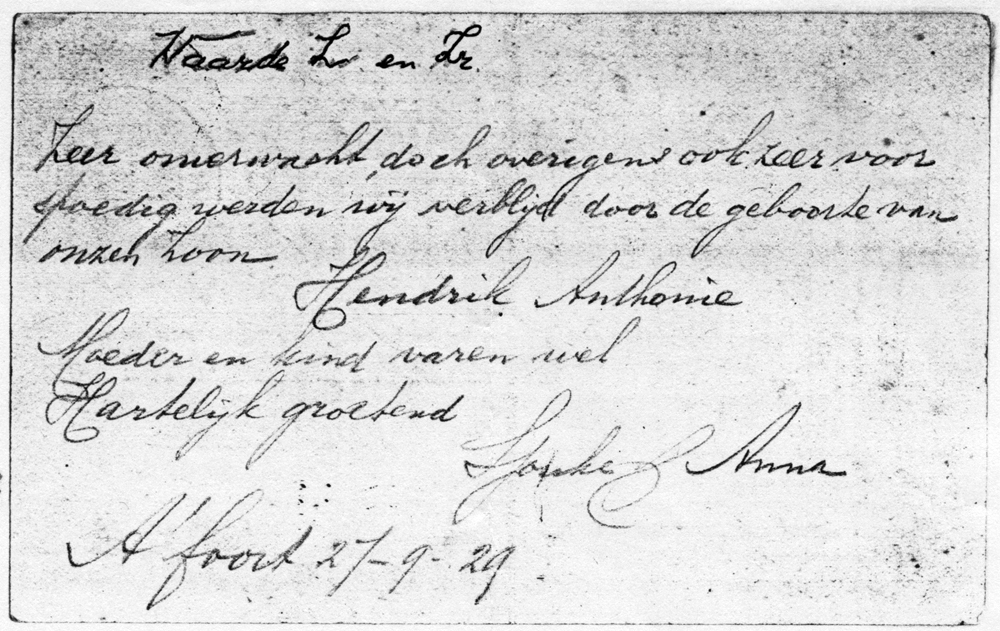 Waarde Zw en Zr.
Zeer onverwacht, doch overigens ook zeer voor
spoedig werden wij verblijd door de geboorte van
onzen Zoon
Hendrik Anthonie
Moeder en kind varen wel
Hartelijk groetend
Sjouke & Anna
A'foort 27-9-29